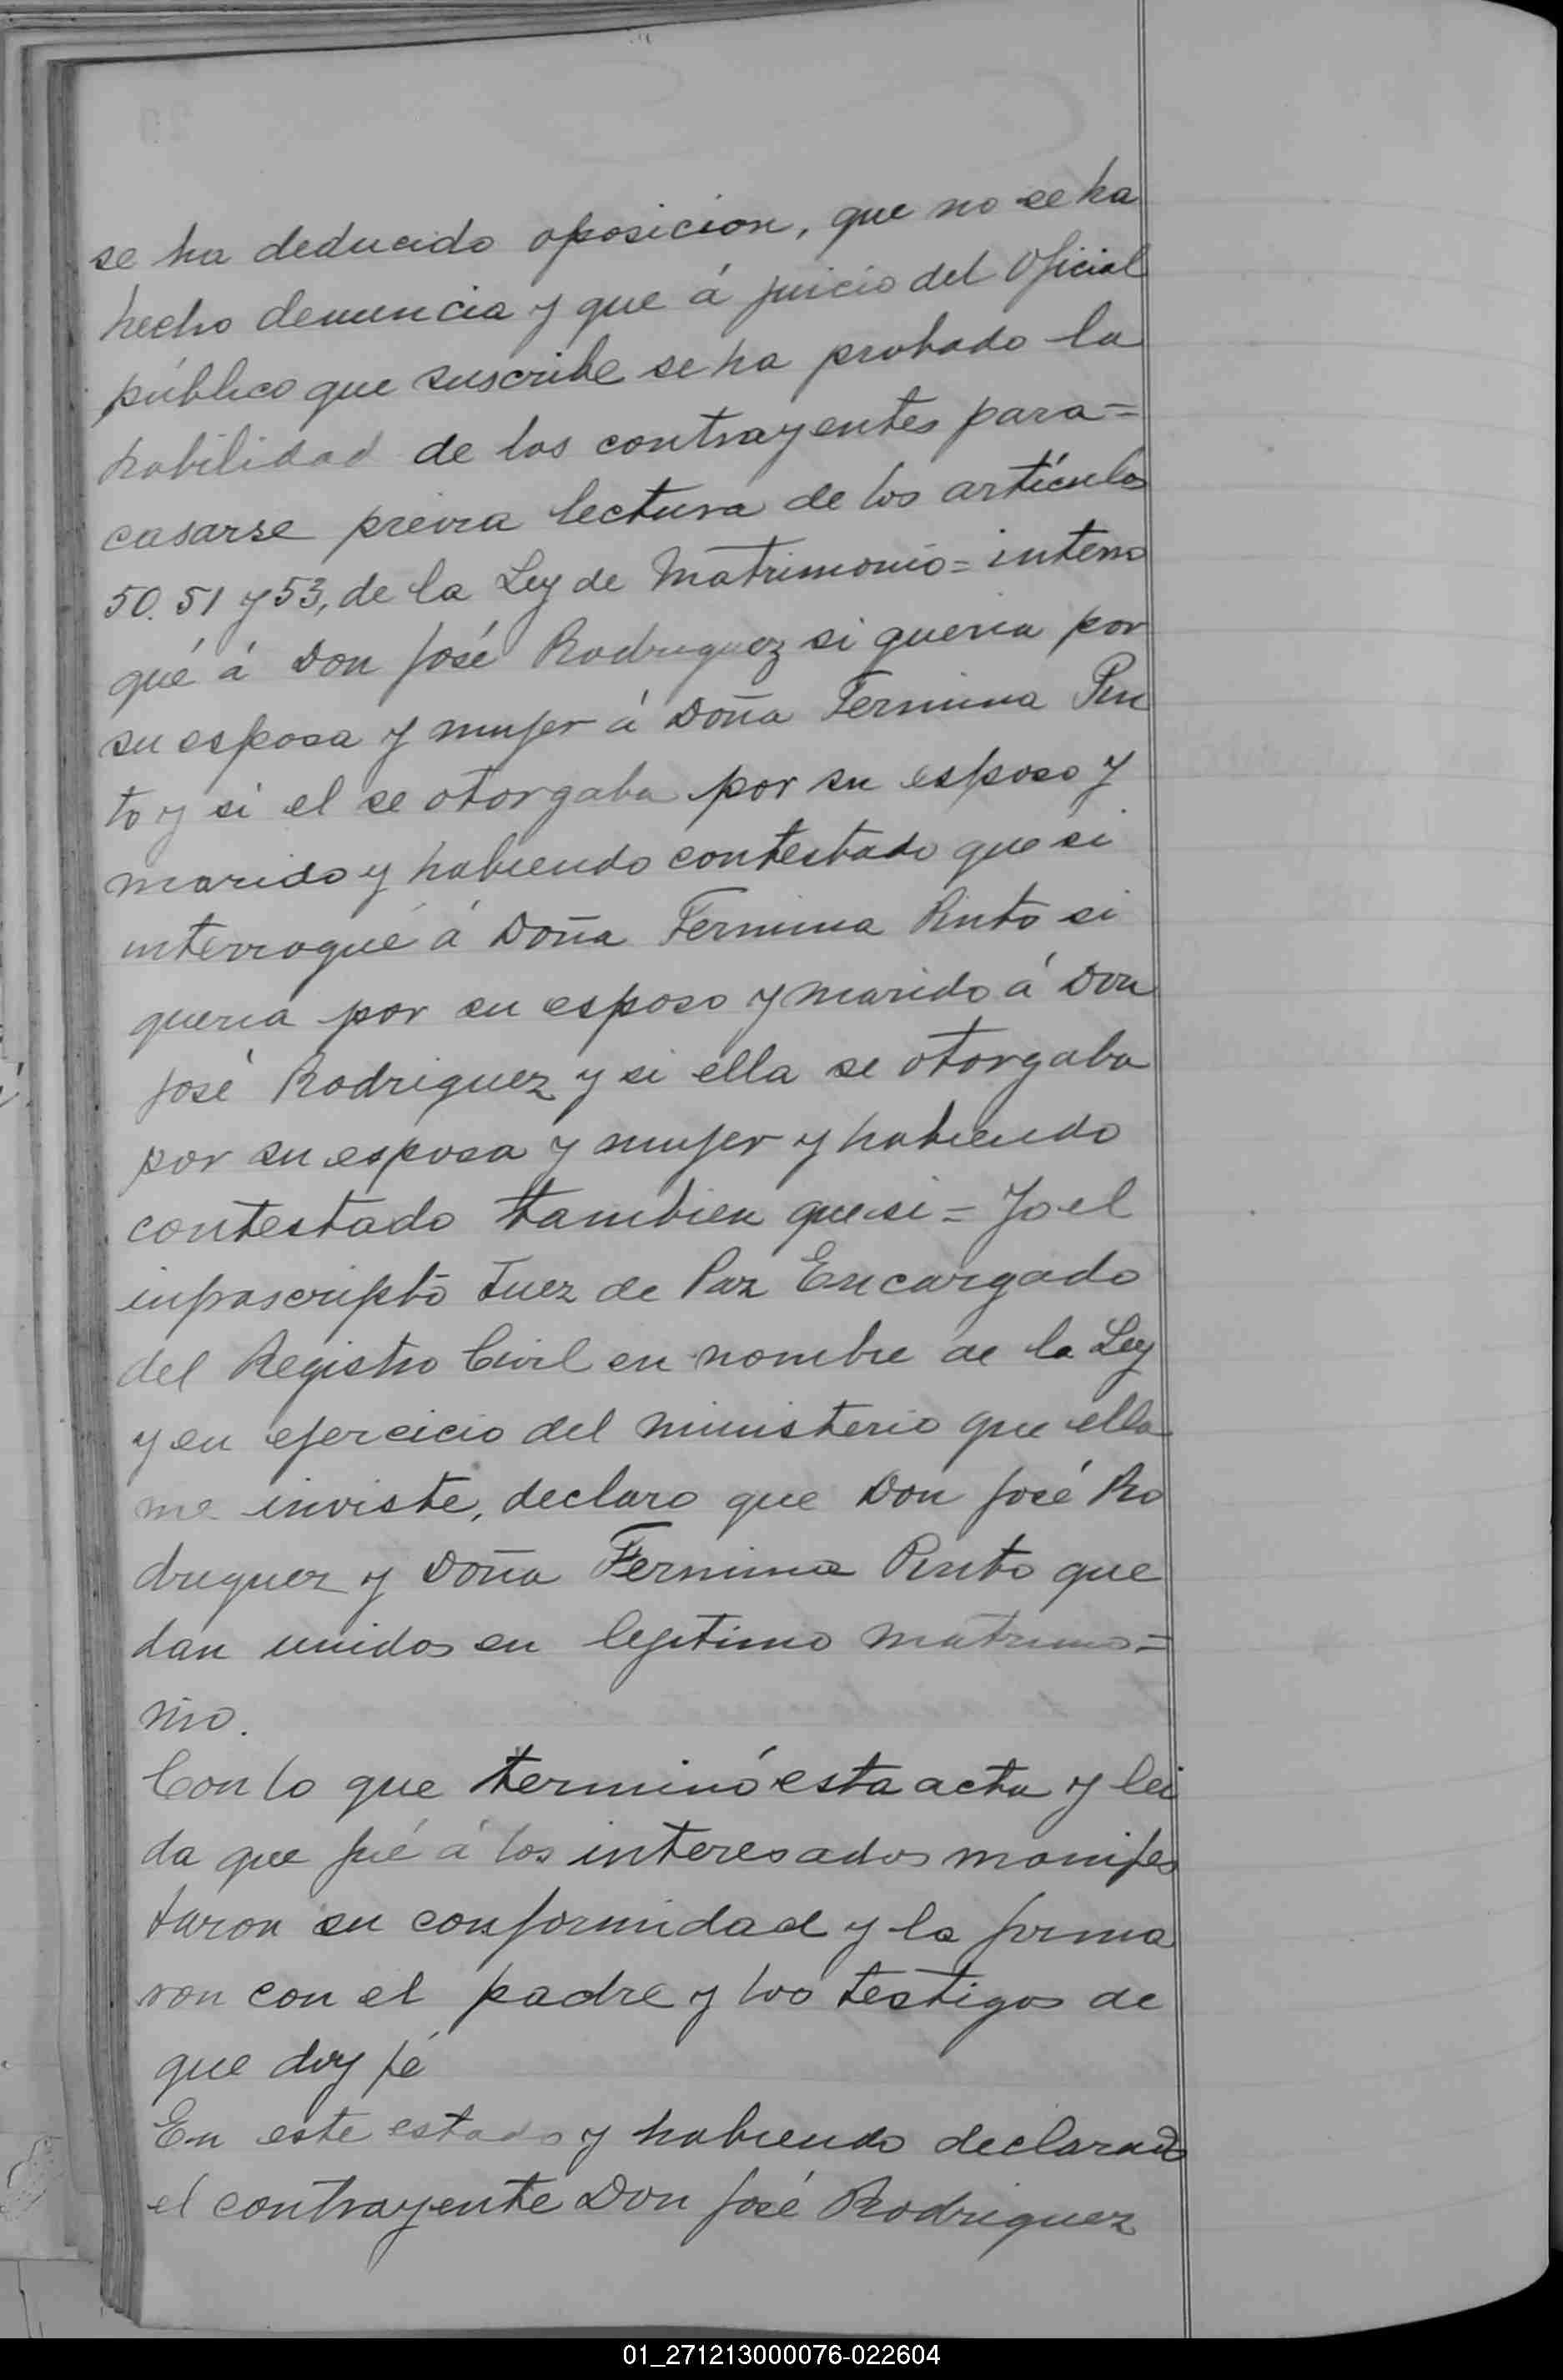 se ha deducido oposicion, que no se ha
hecho denuncia y que á juicio del Oficial
público que suscribe se ha probado la
habilidad de los contrayentes para=
casarse previa lectura de los artículos
50. 51 y 53, de la Ley de Matrimonio = interro
gué á Don José Rodriguez si queria por
su esposa y mujer á Doña Fermina Pin
to y si el se otorgaba por su esposo y
marido y habiendo contestado que si
interrogué á Doña Fermina Pinto si
queria por su esposo y marido á Don
José Rodriguez y si ella se otorgaba
por su esposa y mujer y habiendo
contestado tambien que si = Yo el
infrascripto Juez de Paz Encargado
del Registro Civil en nombre de la Ley
y en ejercicio del ministerio que ella
me inviste, declaro que Don José Ro
driguez y Doña Fermina Pinto que
dan unidos en legitimo matrimo=
nio.
Con lo que terminó esta acta y lei
da que fué á los interesados manifes
taron su conformidad y la firma
ron con el padre y los testigos de
que doy fé
En este estado y habiendo declarado
el contrayente Don José Rodriguez
01_271213000076-022604